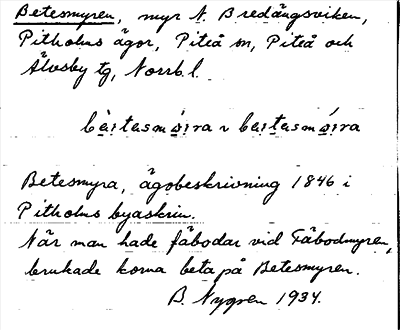 Betesmyren, myr N. Bredängsviken,
Pitholms ägor, Piteå sn, Piteå och
Älvsby tg, Norrb. l.
bèitasmø̀ira ~ beitasmǿira
Betesmyra, ägobeskrivning 1846 i
Pitholms byaskrin.
När man hade fäbodar vid Fäbodmyren,
brukade korna beta på Betesmyren.
B. Nygren 1934.